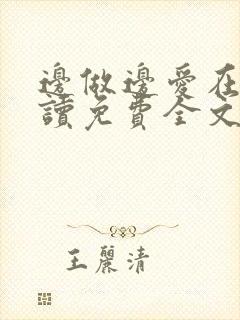 邊做邊愛在
讀免費全文
王麗清